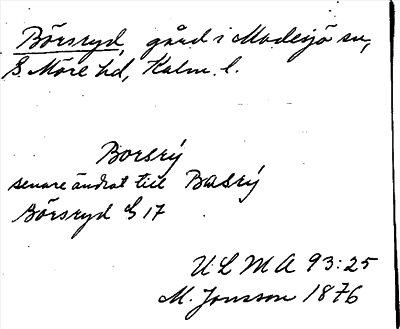 Börsryd, gård i Madesjö sn,
S. Möre hd, Kalm. l.
Borsrý
senare ändrat till Basrý
Börsryd S 17
ULMA 93:25
M. Jonsson 1876